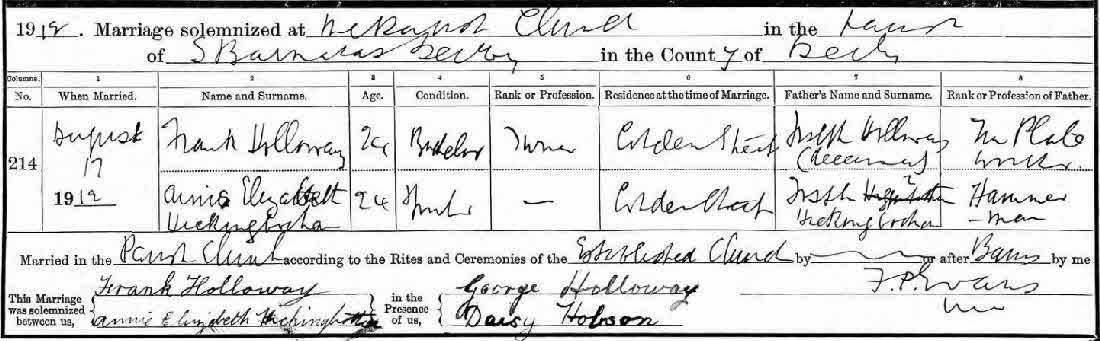 1912. Marriage solemnized at the Parish Church in the Parish
of S Barnabas Derby in the County of Derby
Columns. 1 2 3 4 5 6 7 8
No. When Married. Name and Surname. Age. Condition. Rank or Profession. Residence at the time of Marriage. Father's Name and Surname. Rank or Profession of Father.
214
August 17 1912
Frank Holloway 24 Bachelor Turner Colden Street Joseph Holloway (deceased) Tin Plate worker.
Annie Elizabeth Hickingbotham 24 Spinster — Colden Street Joseph Hickingbotham Hammer-man
Married in the Parish Church according to the Rites and Ceremonies of the Established Church by or after Banns by me
This Marriage was solemnized between us,
Frank Holloway
Annie Elizabeth Hickingbotham
in the Presence of us,
George Holloway
Daisy Hobson
F.P. Evans